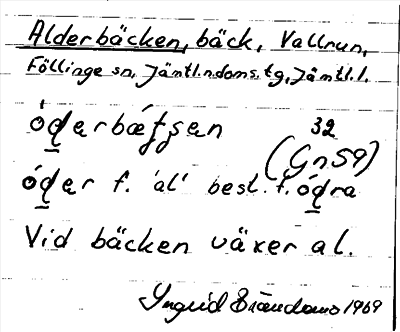 Alderbäcken, bäck, Vallrun,
Föllinge sn, Jämtl.n.doms.tg, Jämtl.l.
óderbæƭsen 32
(Gn S9)
óder f. 'al' best. f. ódra
Vid bäcken växer al.
Ingrid 1969